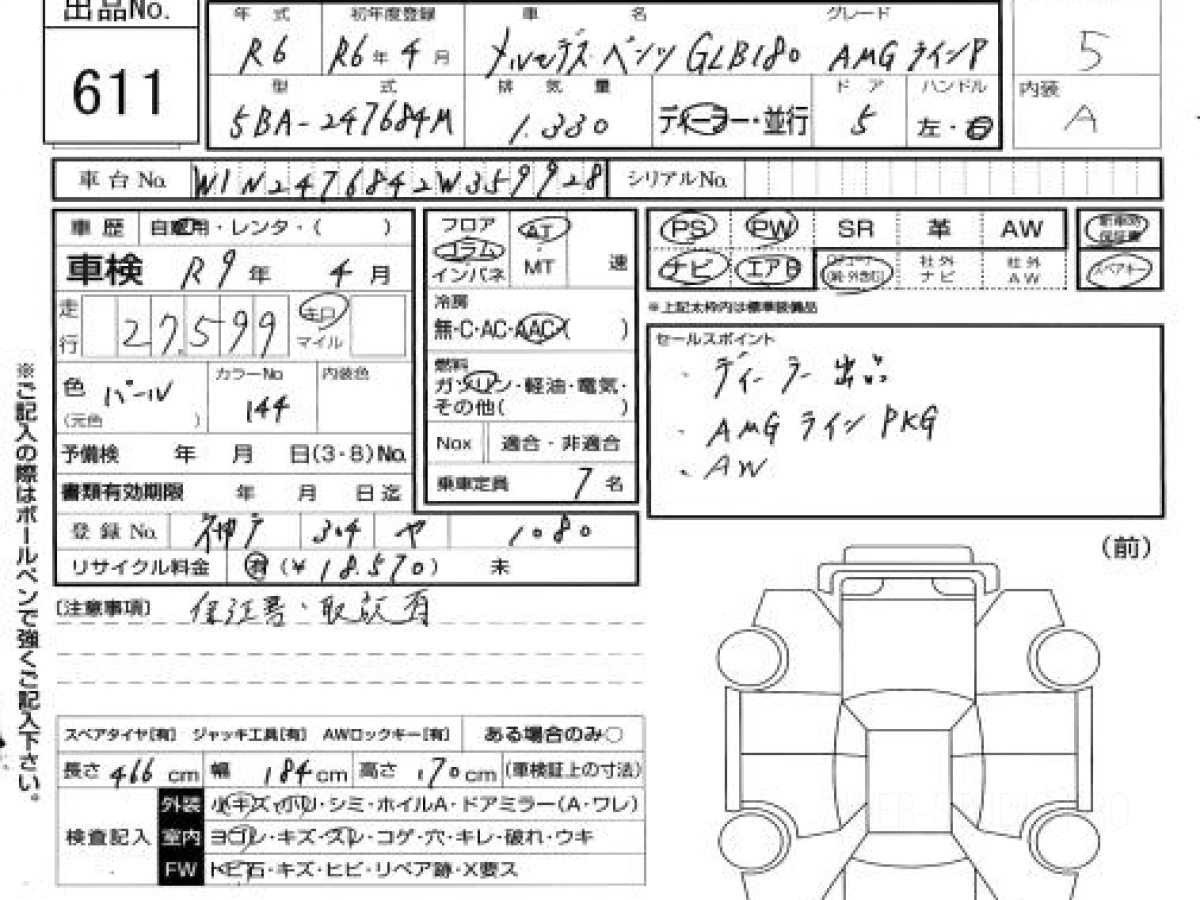 出品No.
611
年式 初年度登録 車名 グレード
R6 R6年4月 メルセデス・ベンツ GLB180 AMGラインP 5
型式 排気量 ドア ハンドル 内装
5BA-247684M 1.330 ディーラー・並行 5 左・右 A
車台No. W1N2476842W359928 シリアルNo.
車歴 自家用・レンタ・( )
車検 R9年 4月
走行 27,599 キロ マイル
色 パール (元色 ) カラーNo 144 内装色
予備検 年 月 日(3・8)No.
書類有効期限 年 月 日迄
登録No. 神戸 304 や 1080
リサイクル料金 有 (¥18.570) 未
フロア コラム インパネ AT MT 速
冷房
無・C・AC・AAC・( )
燃料
ガソリン・軽油・電気・
その他( )
Nox 適合・非適合
乗車定員 7名
PS PW SR 革 AW 新車時保証書
ナビ エアB 社外ナビ 社外AW スペアキー
※上記太枠内は標準装備品
セールスポイント
・ディーラー出品
・AMGライン PKG
・AW
(前)
[注意事項] 保証書・取説有
スペアタイヤ[有] ジャッキ工具[有] AWロックキー[有] ある場合のみ○
長さ 466cm 幅 184cm 高さ 170cm (車検証上の寸法)
検査記入
外装 小キズ・小凹・シミ・ホイルA・ドアミラー(A・ワレ)
室内 ヨゴレ・キズ・スレ・コゲ・穴・キレ・破れ・ウキ
FW トビ石・キズ・ヒビ・リペア跡・X要ス
※ご記入の際はボールペンで強くご記入下さい。